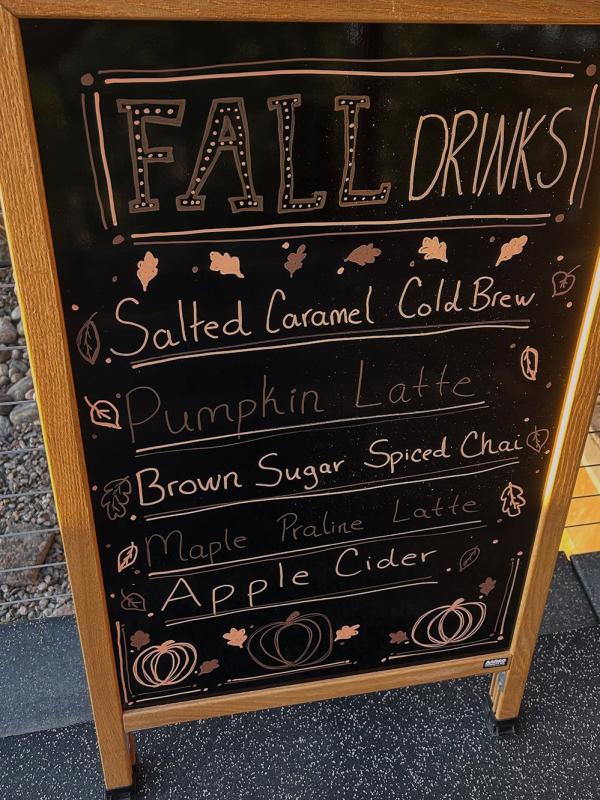 FALL DRINKS
Salted Caramel Cold Brew
Pumpkin Latte
Brown Sugar Spiced Chai
Maple Praline Latte
Apple Cider